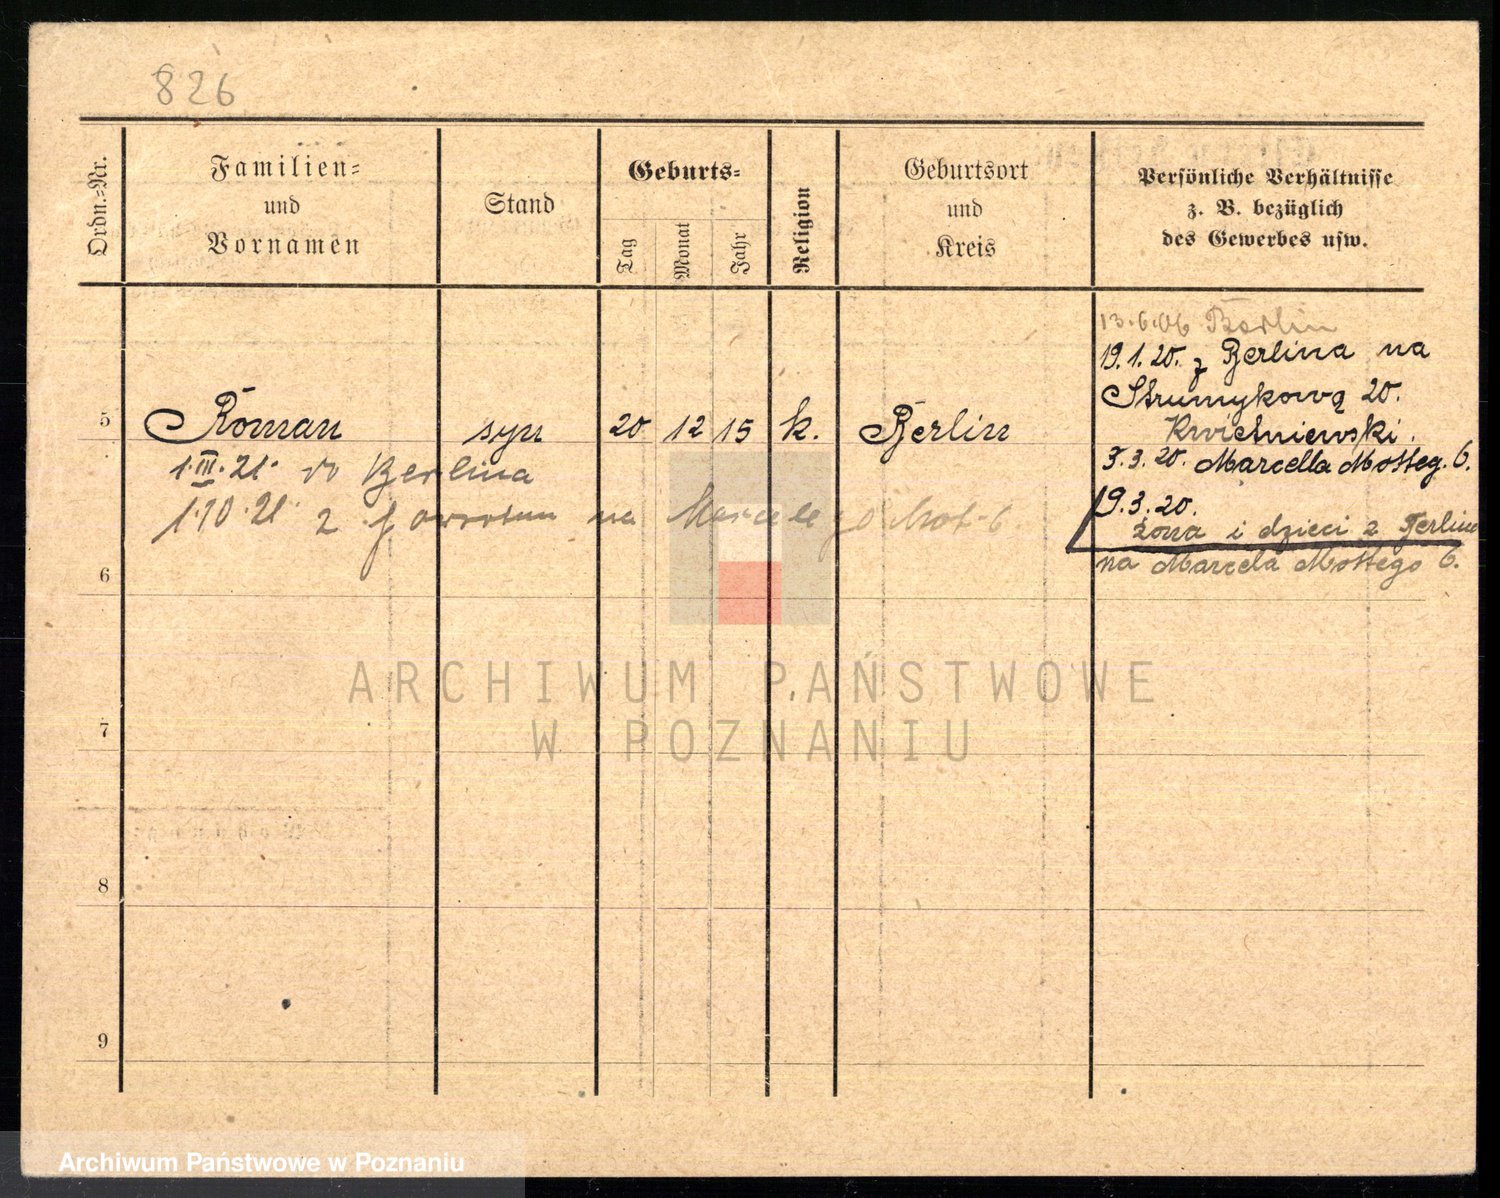 826
Ordn.-Nr.
Familien-
und
Vornamen
Stand
Geburts-
Tag
Monat
Jahr
Religion
Geburtsort
und
Kreis
Persönliche Verhältnisse
z. B. bezüglich
des Gewerbes usw.
13.6.06 Berlin
19.1.20. z Berlina na
Strumykową 20.
Kwietniewski.
5 Roman syn 20 12 15 k. Berlin
3.3.20. Marcella Motteg. 6.
1.III.21. do Berlina
19.3.20.
1.10.21 z powrotem na Marcelego Mot. 6
żona i dzieci z Berlina
na Marcela Mottego 6.
6
7
8
9
ARCHIWUM PAŃSTWOWE
W POZNANIU
Archiwum Państwowe w Poznaniu